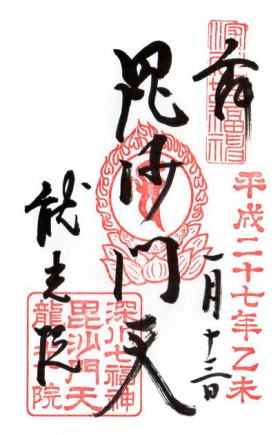 平成二十七年乙未
一月十三日
毘沙門天
龍光院
深川七福神
毘沙門天
龍光院